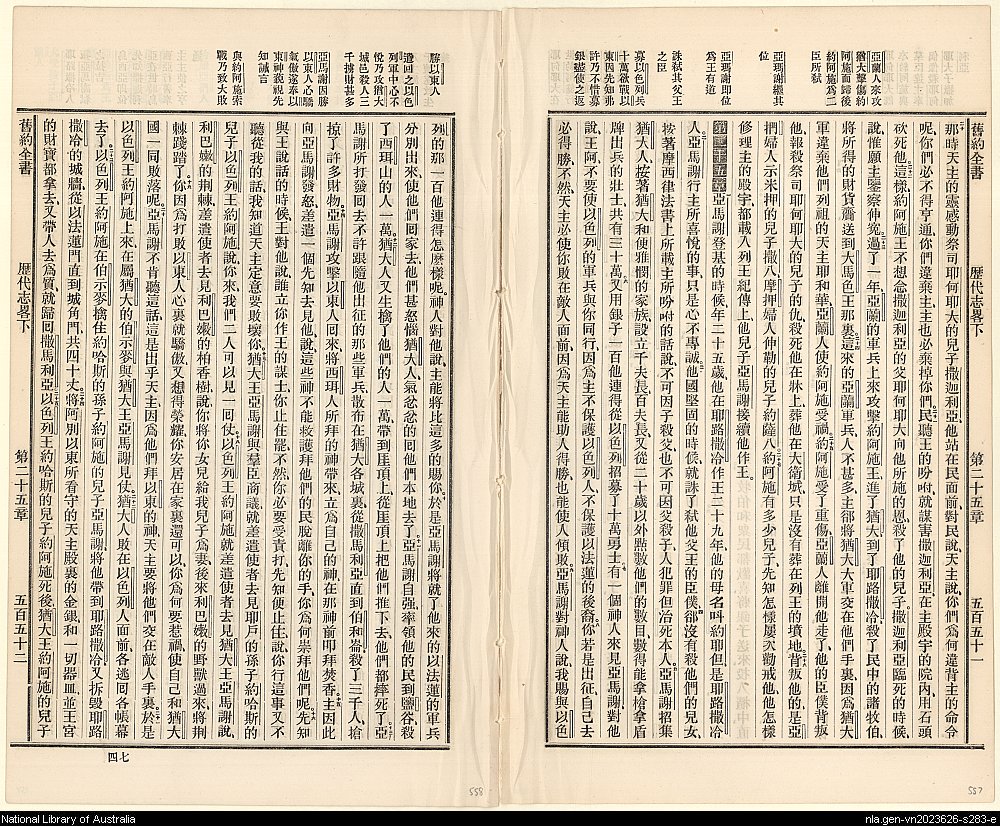 舊約全書 歷代志畧下 第二十五章 五百五十一
亞蘭人來攻
猶大擊傷約
阿施而歸後
約阿施爲二
臣所弒
亞瑪謝繼其
位
亞瑪謝即位
爲王有道
誅弒其父王
之臣
募以色列兵
十萬欲戰以
東因先知弗
許乃不惜募
銀盡使之返
那時天主的靈感動祭司耶何耶大的兒子撒迦利亞、他站在民面前、對民說、天主說、你們爲何違背主的命令
呢、你們必不得亨通、你們違棄主、主也必棄掉你們、民聽王的吩咐、就謀害撒迦利亞、在主殿宇的院內、用石頭
砍死他、這樣、約阿施王不想念撒迦利亞的父耶何耶大向他所施的恩、殺了他的兒子、撒迦利亞臨死的時候、
說、惟願主鑒察伸冤、過了一年、亞蘭的軍兵上來攻擊約阿施王、進了猶大、到了耶路撒冷、殺了民中的諸牧伯、
將所得的財貨齎送到大馬色王那裏、這來的亞蘭軍兵人不甚多、主卻將猶大大軍交在他們手裏、因爲猶大
軍違棄他們列祖的天主耶和華、亞蘭人使約阿施受禍、約阿施受了重傷、亞蘭人離開他走了、他的臣僕背叛
他、報殺祭司耶何耶大的兒子的仇、殺死他在牀上、葬他在大衛城、只是沒有葬在列王的墳地、背叛他的、是亞
捫婦人示米押的兒子撒八、摩押婦人伸勒的兒子約薩八、約阿施有多少兒子、先知怎樣屢次勸戒他、他怎樣
修理主的殿宇、都載入列王紀傳上、他兒子亞瑪謝接續他作王、
第二十五章 亞瑪謝登基的時候、年二十五歲、他在耶路撒冷作王二十九年、他的母名呌約耶但、是耶路撒冷
人、亞瑪謝行主所喜悅的事、只是心不專誠、他國堅固的時候、就誅了弒他父王的臣僕、卻沒有殺他們的兒女、
按著摩西律法書上所載主所吩咐的話、說、不可因子殺父、也不可因父殺子、人犯罪但治死本人、亞瑪謝招集
猶大人、按著猶大和便雅憫的家族、設立千夫長、百夫長、又從二十歲以外、點數他們的數目、數得能拿槍拿盾
牌出兵的壯士、共有三十萬、又用銀子一百他連得、從以色列招募了十萬勇士、有一個神人來見亞瑪謝、對他
說、王阿、不要使以色列的軍兵與你同行、因爲主不保護以色列人、不保護以法蓮的後裔、你若是出征、自己去
必得勝、不然、天主必使你敗在敵人面前、因爲天主能助人得勝、也能使人傾敗、亞瑪謝對神人說、我賜與以色
557
勝以東人
遣回之以色
列軍中心不
悅乃攻猶大
城邑殺人三
千擄財甚多
亞馬謝因勝
以東人心驕
氣傲遂奉以
東神藐視先
知諴言
與約阿施索
戰乃致大敗
列的那一百他連得怎麽樣呢、神人對他說、主能將比這多的賜你、於是亞瑪謝將就了他來的以法蓮的軍兵
分別出來、使他們囘家去、他們甚惱怒猶大人、氣忿忿的囘他們本地去了、亞瑪謝自強、率領他的民到鹽谷、殺
了西珥山的人一萬、猶大人又生擒了他們的人一萬、帶到厓頂上、從厓頂上把他們推下去、他們都摔死了、亞
瑪謝所打發囘去、不許跟隨他出征的那些軍兵、散布在猶大各城裏、從撒馬利亞直到伯和崙、殺了三千人、搶
掠了許多財物、亞瑪謝攻擊以東人囘來、將西珥人所拜的神帶來、立爲自己的神、在那神前叩拜焚香、主因此
向亞瑪謝發怒、差遣一個先知去見他、說、這些神不能救護他們的民脫離你的手、你爲何崇拜他們呢、先知
與王說話的時候、王對他說、誰立你作王的謀士、你止住罷、不然、你必要受責打、先知便止住、說、你行這事、又不
聽從我的話、我知道天主定意要敗壞你、猶大王亞瑪謝與羣臣商議、就差遣使者去見耶戶的孫子約哈斯的
兒子以色列王約阿施、說、你來、我們二人可以見一囘仗、以色列王約阿施就差遣使者去見猶大王亞瑪謝、說、
利巴嫩的荆棘差遣使者去見利巴嫩的柏香樹、說、你將你女兒給我兒子爲妻、後來利巴嫩的野獸過來、將荆
棘踐踏了、你因爲打敗以東人、心裏就驕傲、又想得榮耀、你安居在家裏還可以、你爲何要惹禍、使自己和猶大
國一同敗落呢、亞瑪謝不肯聽這話、這是出乎天主、因爲他們拜以東的神、天主要將他們交在敵人手裏、於是
以色列王約阿施上來、在屬猶大的伯示麥與猶大王亞瑪謝見仗、猶大人敗在以色列人面前、各逃囘各帳幕
去了、以色列王約阿施在伯示麥擒住約哈斯的孫子約阿施的兒子亞瑪謝、將他帶到耶路撒冷、又拆毀耶路
撒冷的城牆、從以法蓮門直到城角門、共四十丈、將阿別以東所看守的天主殿裏的金銀和一切器皿、並王宮
的財寶都拿去、又帶人去爲質、就歸囘撒馬利亞、以色列王約哈斯的兒子約阿施死後、猶大王約阿施的兒子
舊約全書 歷代志畧下 第二十五章 五百五十二
七四
558
National Library of Australia
nla.gen-vn2023626-s283-e